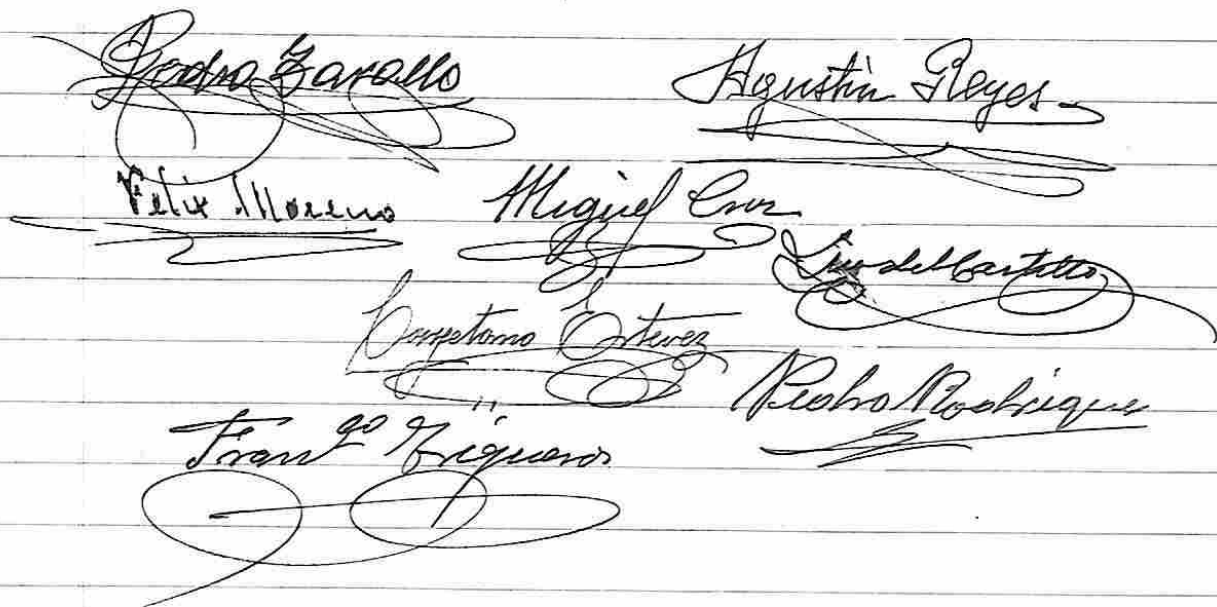 Pedro Zavallo
Agustín Reyes
Felix Moreno
Miguel Cruz
Lino del Castillo
Cayetano Estevez
Pedro Rodrigue
Franco Trigueros